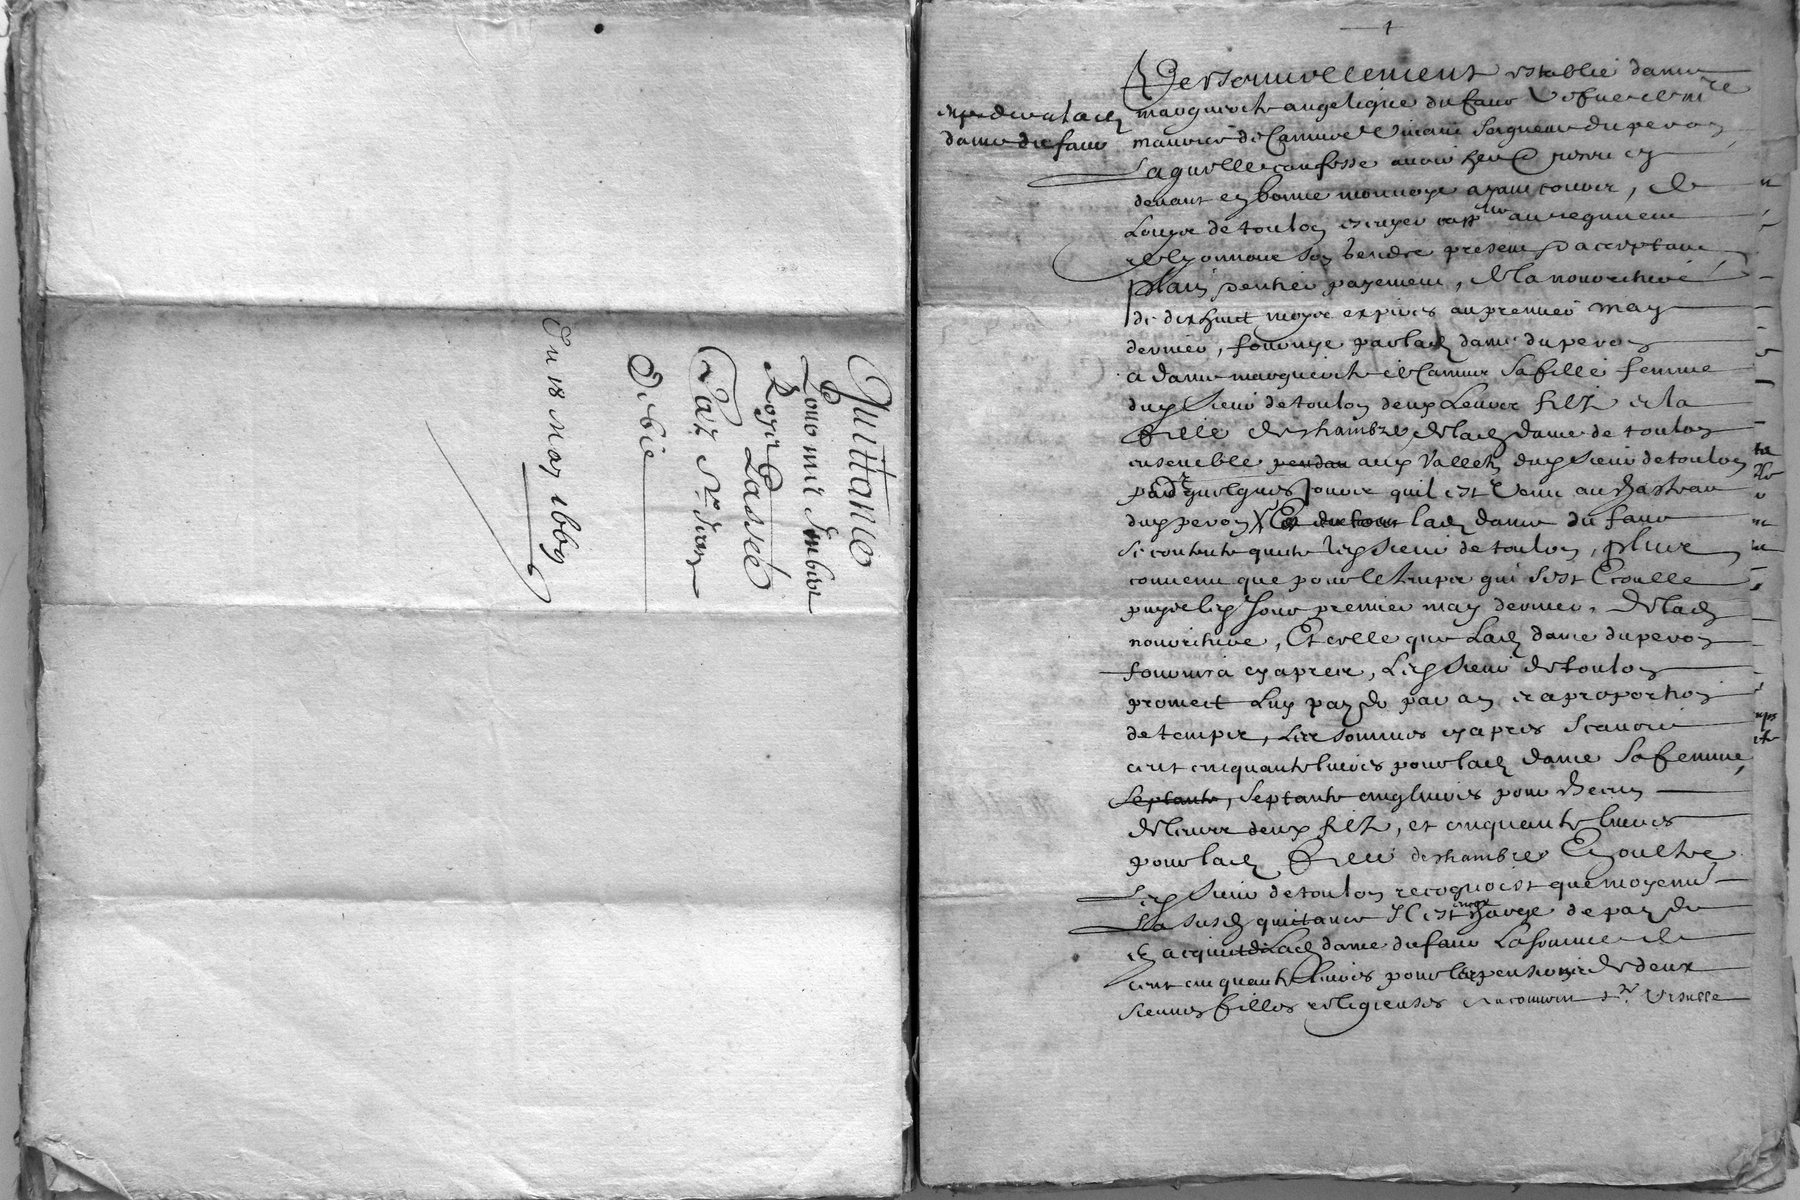 Quittance
Pour mre
Royr Passeé
Du 18 May 1669
Personnellement establie dame
marguerite angelique du faur Vefue de mre
dame du faur
maurice de Camure Seigneur du peron
Laquelle confesse avoir heu
devant en bonne monnoye ayant cours, de
Louys de toulon escuyer cappne au regiment
de lyonnois son gendre present & acceptant
plain & entier payement, de la nourriture
de dixhuict moys expirés au premier may
dernier, fournye par lad dame du peron
a dame marguerite de Camure sa fille femme
dud sieur de toulon deux Leurs filz et la
fille de chambre de lad dame de toulon
ensemble pendan aux Valletz dud sieur de toulon
pandt quelques jours quil est Venu au chasteau
dud peron Et du tout lad dame du faur
se contente quitte led sieur de toulon, plus
convenu que pour le temps qui sest Escoullé
puys led jour premier may dernier, de lad
nourriture, Et celle que Lad dame du peron
fournira cy apres, Led sieur de toulon
promect Luy payer par an et a proportion
de temps, Les sommes cy apres scavoir
cent cinquante livres pour lad dame sa femme,
Septante, septante cinq livres pour checun
de leurs deux filz, et cinquante livres
pour lad fille de chambre En oultre
Led sieur de toulon recognoist que moyent
La susd quitance Il est charge de payer
en acquit de Lad dame du faur La somme de
cent cinquante livres pour les pensions de deux
siennes filles religieuses au couvent Ste Ursulle